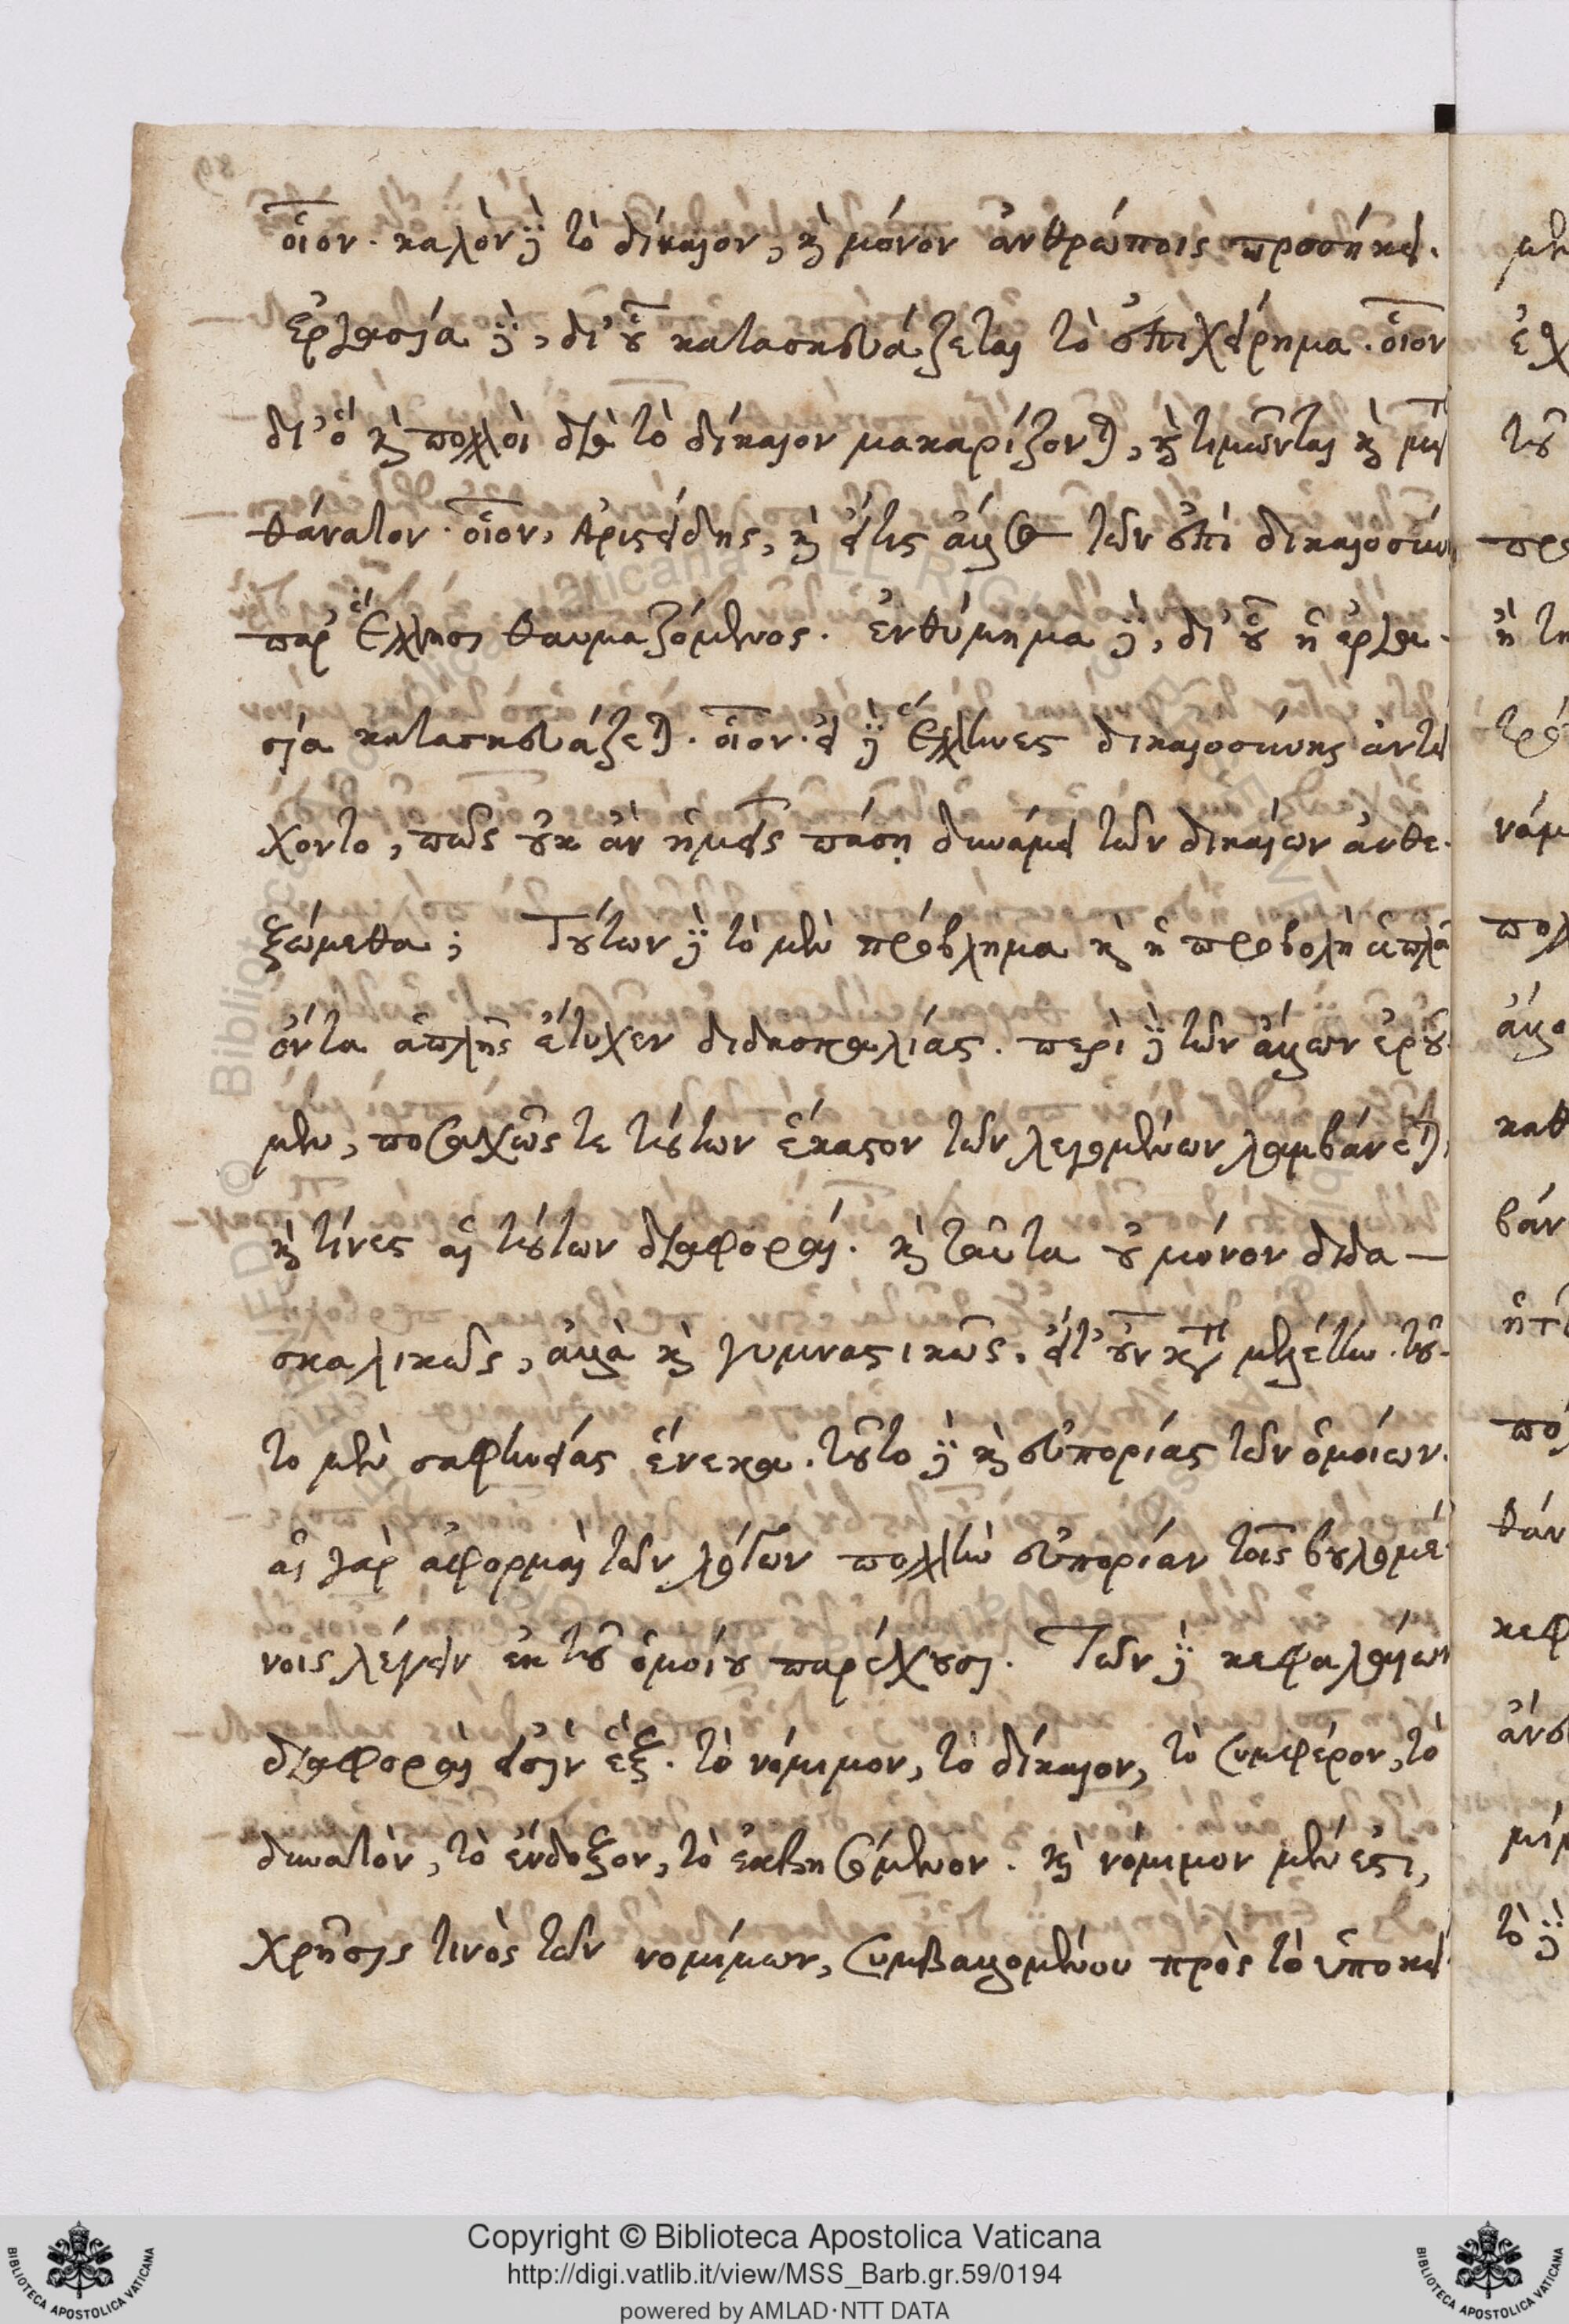 οἷον· καλὸν δὲ τὸ δίκαιον, καὶ μόνον ἀνθρώποις προσήκει.
ἐργασία δὲ, δι' οὗ κατασκευάζεται τὸ ἐπιχείρημα. οἷον
δι' ὃ καὶ πολλοὶ διὰ τὸ δίκαιον μακαρίζονται, καὶ τιμῶνται καὶ μετὰ
θάνατον· οἷον, Ἀριστείδης, καὶ εἴτις ἄλλος τῶν ἐπὶ δικαιοσύνῃ
παρ' Ἕλλησι θαυμαζόμενος. ἐνθύμημα δὲ, δι' οὗ ἡ ἐργα-
σία κατασκευάζεται. οἷον· εἰ δὲ Ἕλληνες δικαιοσύνης ἀντεί
χοντο, πῶς οὐκ ἂν ἡμεῖς πάσῃ δυνάμει τῶν δικαίων ἀνθε-
ξώμεθα; Τούτων δὲ τὸ μὲν πρόβλημα καὶ ἡ προβολὴ ἁπλᾶ
ὄντα ἁπλῆς ἔτυχεν διδασκαλίας. περὶ δὲ τῶν ἄλλων ἐροῦ-
μεν, ποσαχῶς τε τούτων ἕκαστον τῶν λεγομένων λαμβάνεται,
καὶ τίνες αἱ τούτων διαφοραί. καὶ ταῦτα οὐ μόνον διδα-
σκαλικῶς, ἀλλὰ καὶ γυμναστικῶς, εἴτ' οὖν κατὰ μελέτην. τοῦ-
το μὲν σαφηνείας ἕνεκα. τοῦτο δὲ καὶ εὐπορίας τῶν ὁμοίων.
αἱ γὰρ ἀφορμαὶ τῶν λόγων πολλὴν εὐπορίαν τοῖς βουλομέ-
νοις λέγειν ἐκ τοῦ ὁμοίου παρέχουσι. Τῶν δὲ κεφαλαίων
διαφοραὶ εἰσὶν ἕξ. τὸ νόμιμον, τὸ δίκαιον, τὸ συμφέρον, τὸ
δυνατὸν, τὸ ἔνδοξον, τὸ ἐκβησόμενον. καὶ νόμιμον μέν ἐστι,
χρῆσις τινὸς τῶν νομίμων, συμβαλλομένου πρὸς τὸ ὑποκεί
Copyright © Biblioteca Apostolica Vaticana
http://digi.vatlib.it/view/MSS_Barb.gr.59/0194
powered by AMLAD·NTT DATA
BIBLIOTECA APOSTOLICA VATICANA
BIBLIOTECA APOSTOLICA VATICANA